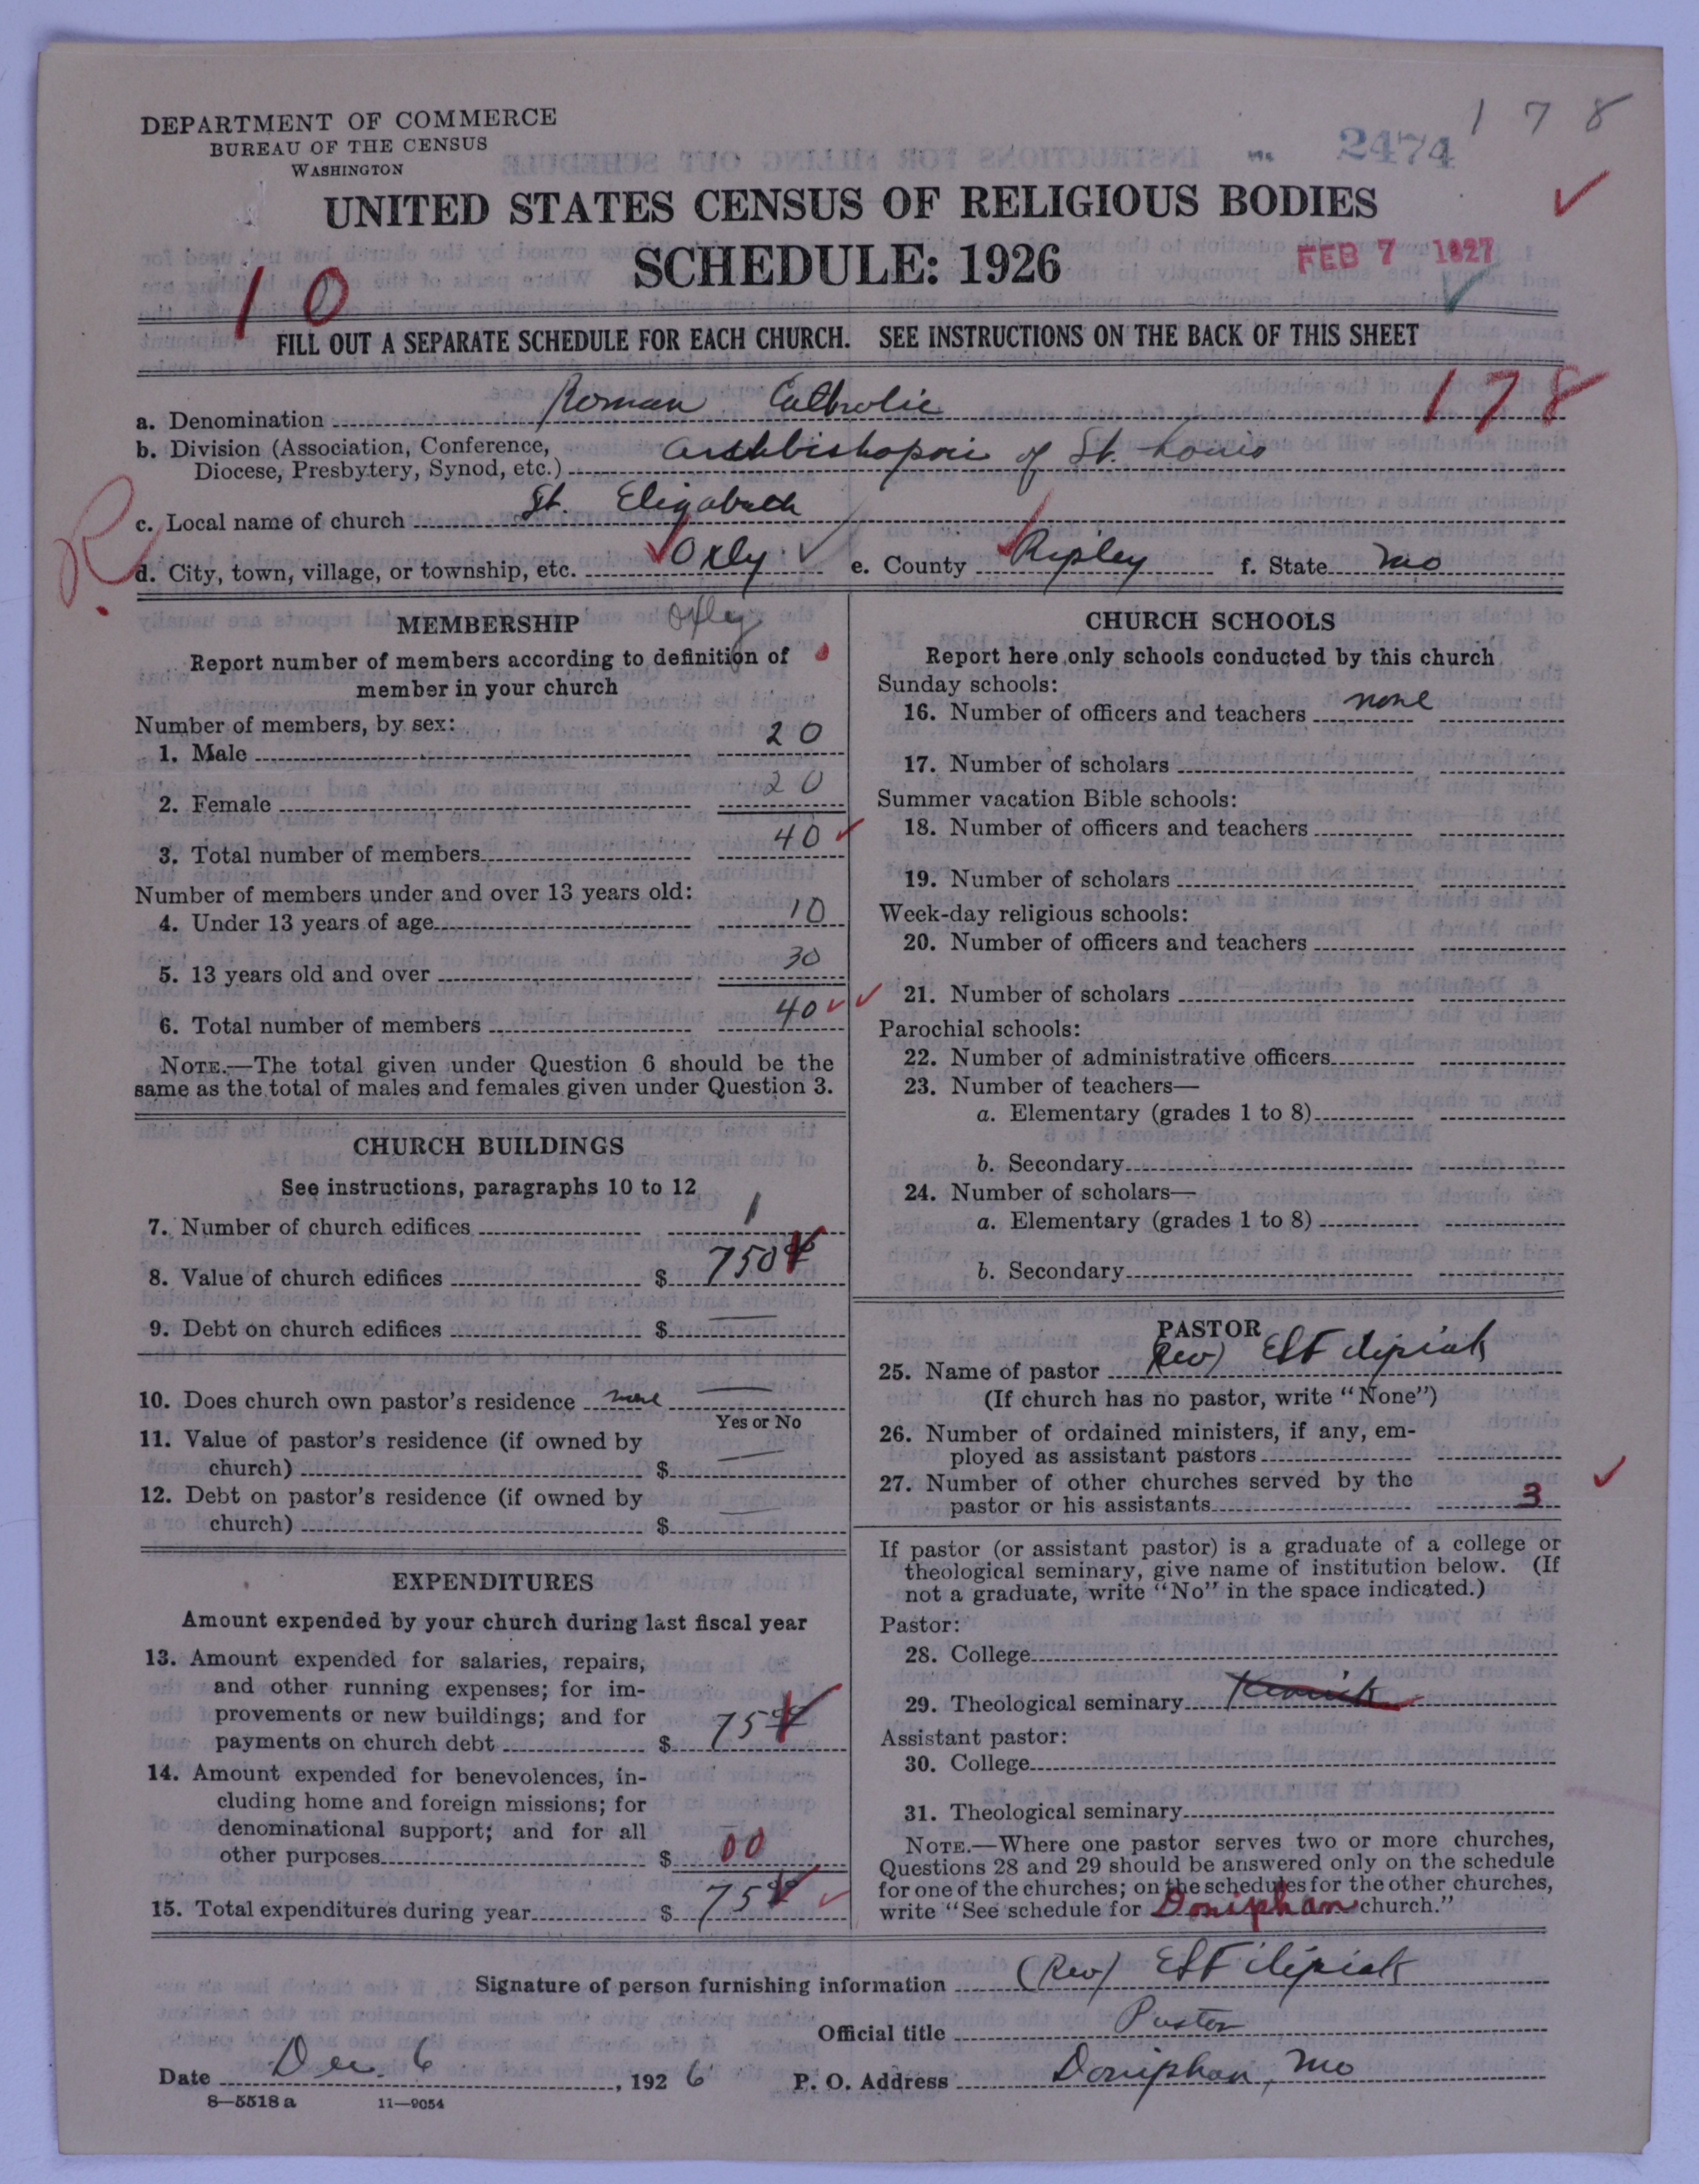 DEPARTMENT OF COMMERCE
BUREAU OF THE CENSUS
WASHINGTON
2474
178
UNITED STATES CENSUS OF RELIGIOUS BODIES
SCHEDULE: 1926
FEB 7 1927
10
FILL OUT A SEPARATE SCHEDULE FOR EACH CHURCH. SEE INSTRUCTIONS ON THE BACK OF THIS SHEET
178
a. Denomination Roman Catholic
b. Division (Association, Conference,
Diocese, Presbytery, Synod, etc.) of St. Louis
c. Local name of church St. Elizabeth
R
d. City, town, village, or township, etc. Oxly e. County Ripley f. State Mo
MEMBERSHIP
Report number of members according to definition of
member in your church
Number of members, by sex:
1. Male 20
2. Female 20
3. Total number of members 40
Number of members under and over 13 years old:
4. Under 13 years of age 10
5. 13 years old and over 30
6. Total number of members 40
NOTE.—The total given under Question 6 should be the
same as the total of males and females given under Question 3.
CHURCH BUILDINGS
See instructions, paragraphs 10 to 12
7. Number of church edifices 1
8. Value of church edifices $ 750
9. Debt on church edifices $ —
10. Does church own pastor's residence none —
Yes or No
11. Value of pastor's residence (if owned by
church) $ —
12. Debt on pastor's residence (if owned by
church) $ —
EXPENDITURES
Amount expended by your church during last fiscal year
13. Amount expended for salaries, repairs,
and other running expenses; for im-
provements or new buildings; and for
payments on church debt $ 75
14. Amount expended for benevolences, in-
cluding home and foreign missions; for
denominational support; and for all
other purposes $ 00
15. Total expenditures during year $ 75
CHURCH SCHOOLS
Report here only schools conducted by this church
Sunday schools:
16. Number of officers and teachers none
17. Number of scholars
Summer vacation Bible schools:
18. Number of officers and teachers
19. Number of scholars
Week-day religious schools:
20. Number of officers and teachers
21. Number of scholars
Parochial schools:
22. Number of administrative officers
23. Number of teachers—
a. Elementary (grades 1 to 8)
b. Secondary
24. Number of scholars—
a. Elementary (grades 1 to 8)
b. Secondary
PASTOR
25. Name of pastor (Rev)
(If church has no pastor, write "None")
26. Number of ordained ministers, if any, em-
ployed as assistant pastors
27. Number of other churches served by the
pastor or his assistants 3
If pastor (or assistant pastor) is a graduate of a college or
theological seminary, give name of institution below. (If
not a graduate, write "No" in the space indicated.)
Pastor:
28. College
29. Theological seminary Kenrick
Assistant pastor:
30. College
31. Theological seminary
NOTE.—Where one pastor serves two or more churches,
Questions 28 and 29 should be answered only on the schedule
for one of the churches; on the schedules for the other churches,
write "See schedule for Doniphan church."
Signature of person furnishing information (Rev)
Official title Pastor
Date Dec. 6, 1926 P. O. Address Doniphan, Mo
8—5518 a 11—9054